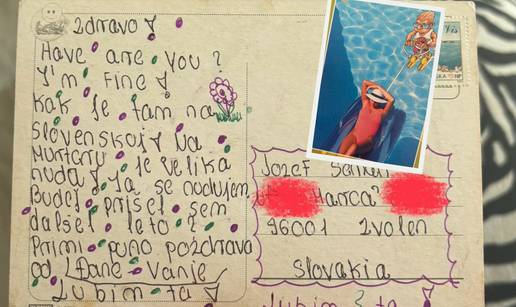 Zdravo!
Have are you?
I'm fine!
Kak je tam na
Slovenskoj! Na
Murteru je velika
nuda! Ja se nadujem
Budej prišel sem
dalšel leto?
Primi puno pozdrava
od Dane Vanje
Lubim ta!
Jozef
96001 Zvolen
Slovakia
Lubim ta